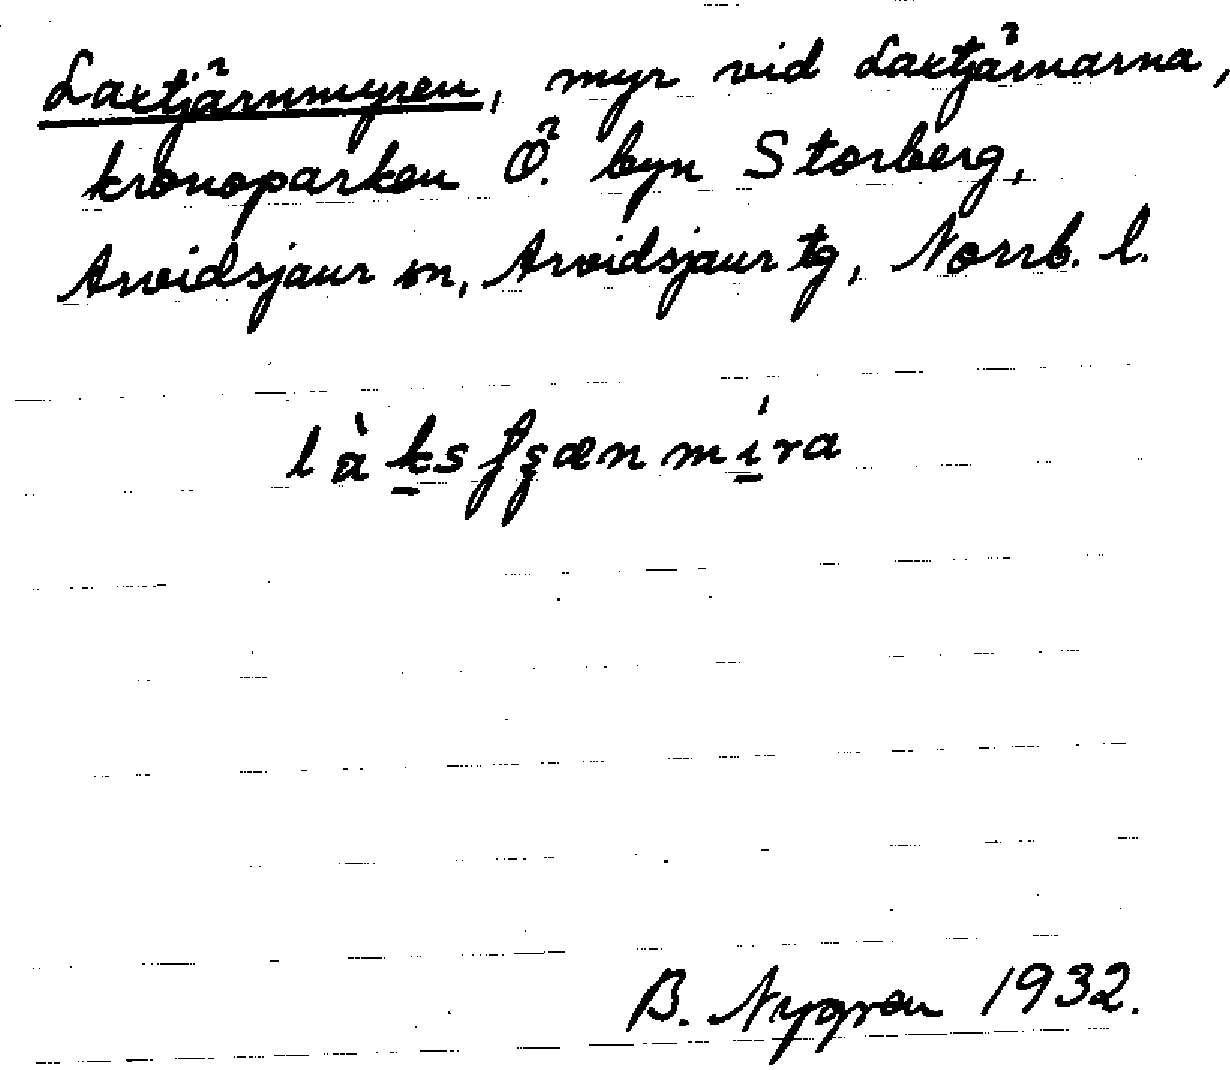 Laxtjärnmyren, myr vid Laxtjärnarna,
kronoparken Ö. byn Storberg,
Arvidsjaur sn, Arvidsjaur tg, Norrb. l.
làksʃʂænmíra
B. Nygren 1932.